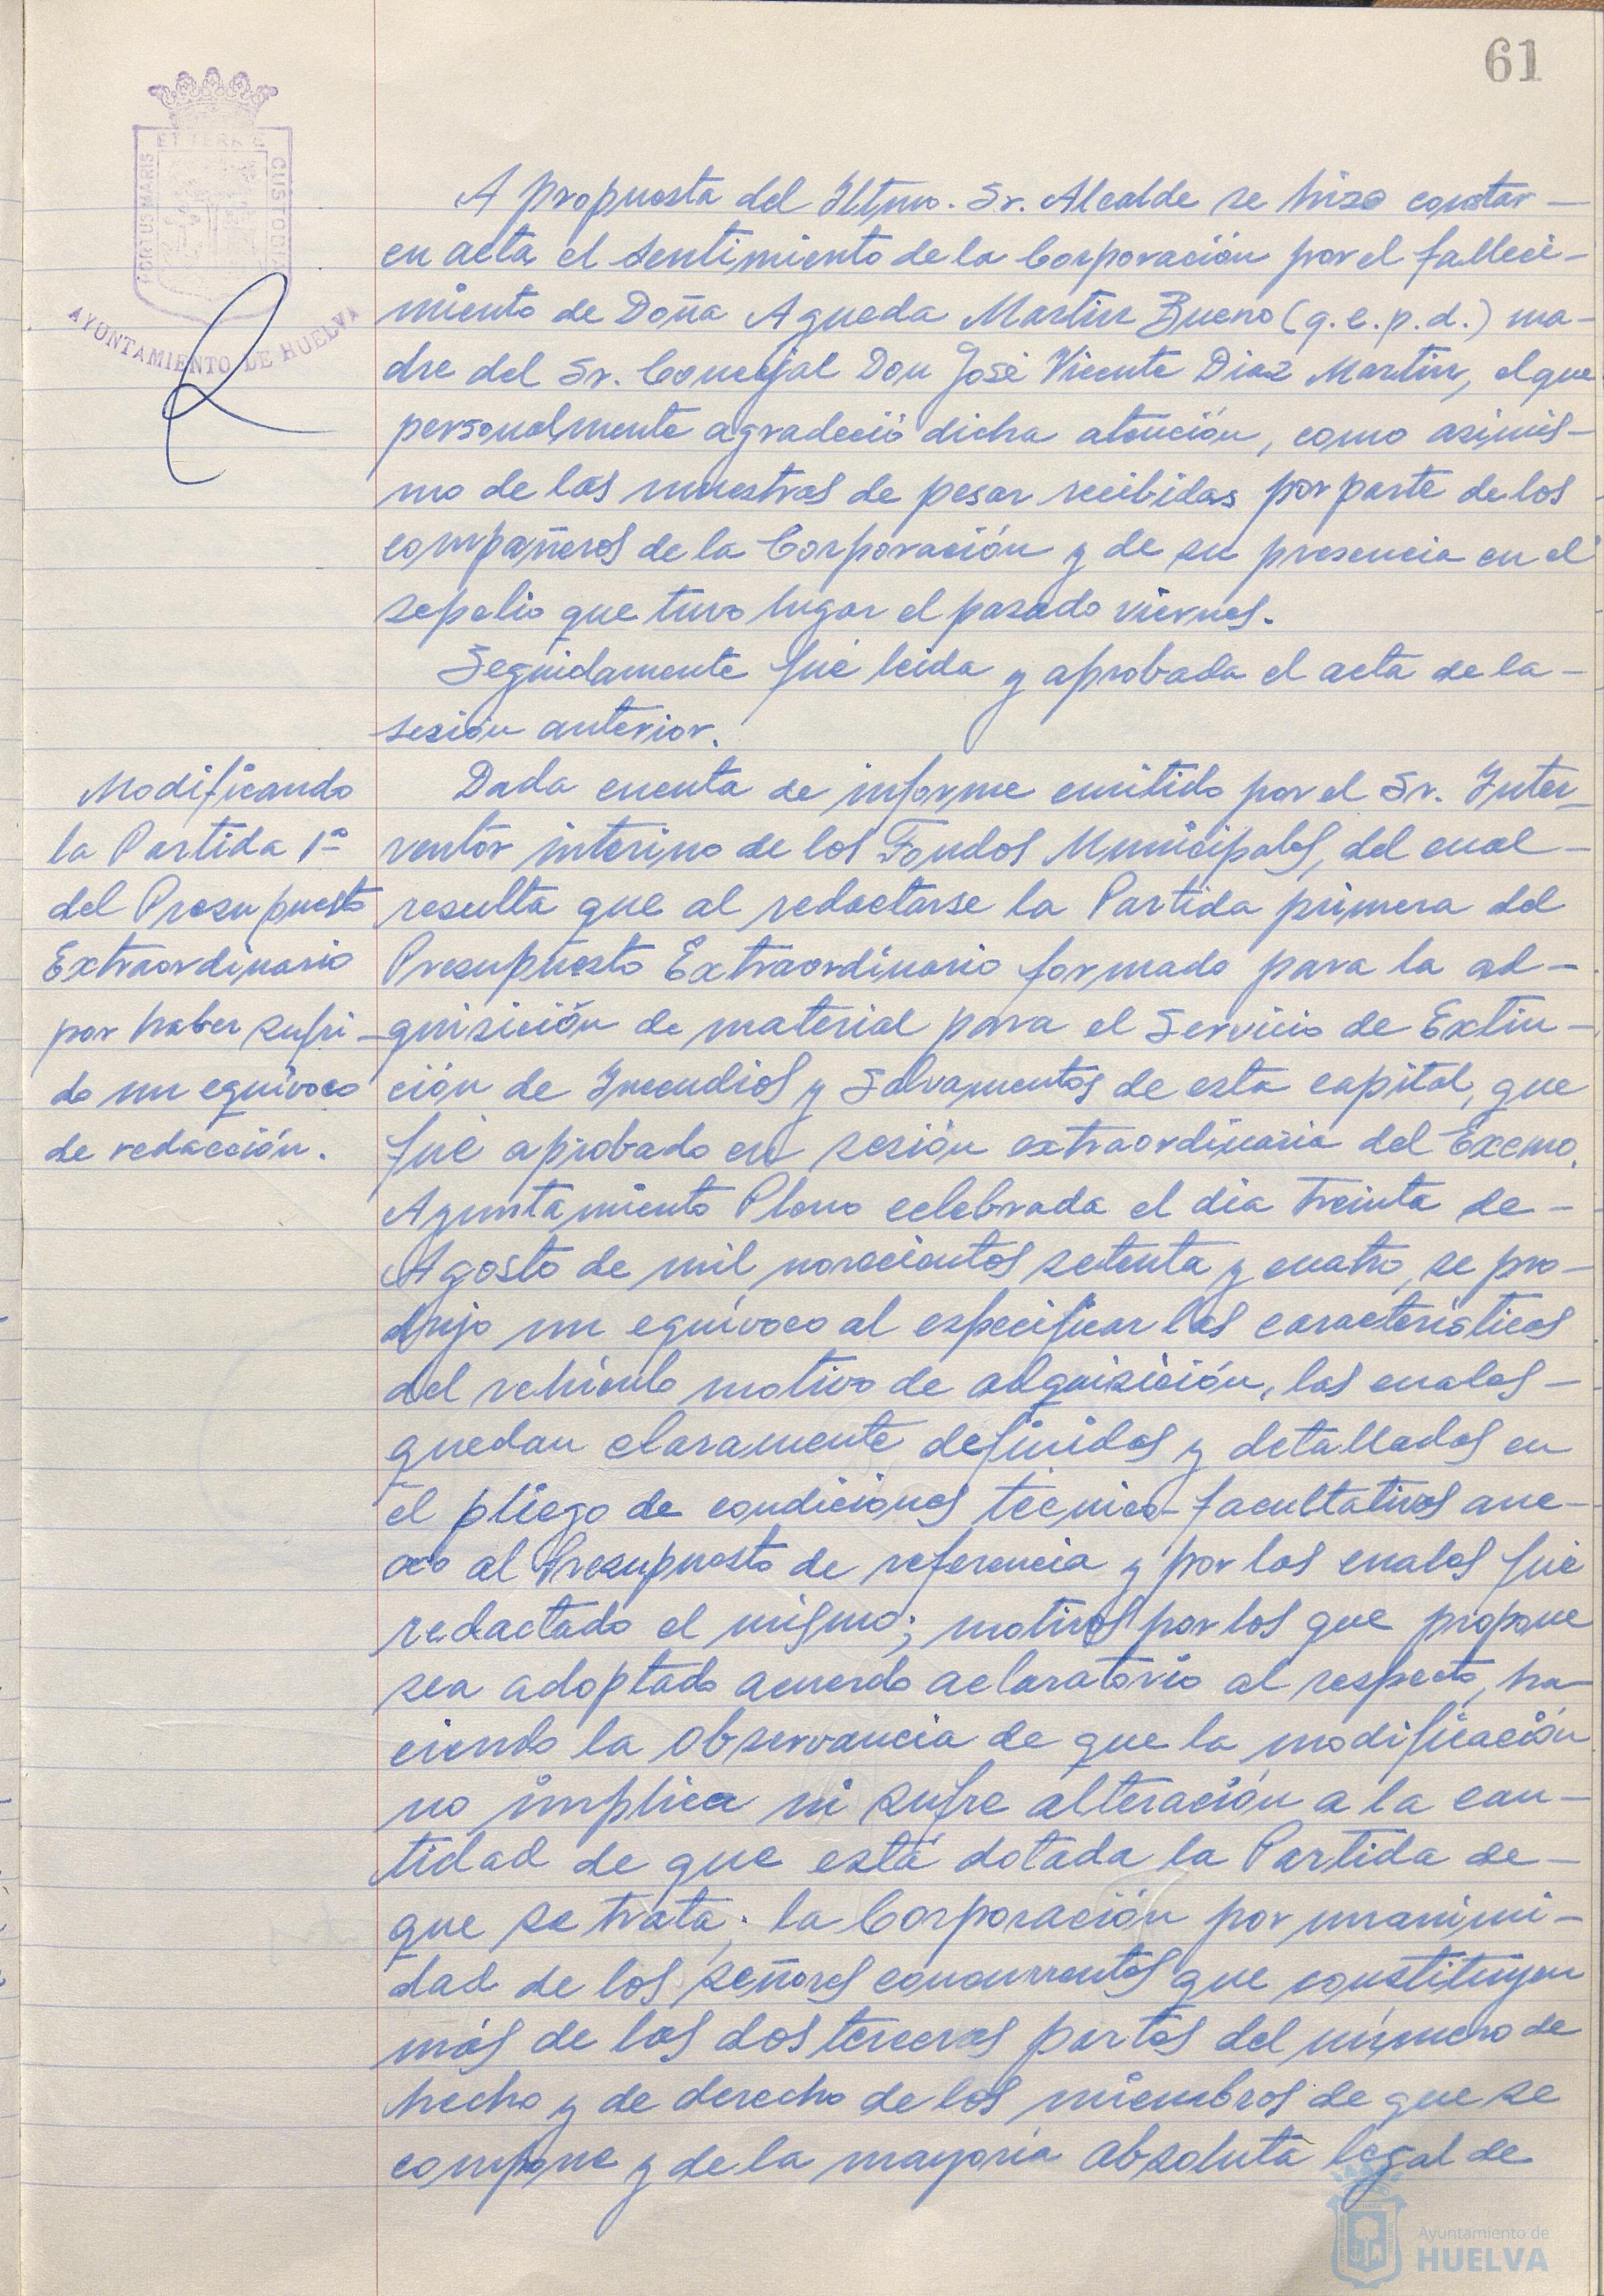 61
PORTUS MARIS ET TERRAE CUSTODIA
AYUNTAMIENTO DE HUELVA
A propuesta del Iltmo. Sr. Alcalde se hizo constar —
en acta el sentimiento de la Corporación por el falleci-
miento de Doña Agueda Martin Bueno (q.e.p.d.) ma-
dre del Sr. Concejal Don José Vicente Diaz Martin, el que
personalmente agradeció dicha atención, como asimis-
mo de las muestras de pesar recibidas por parte de los
compañeros de la Corporación y de su presencia en el
sepelio que tuvo lugar el pasado viernes.
Seguidamente fué leida y aprobada el acta de la —
sesión anterior.
Modificando
la Partida 1ª
del Presupuesto
Extraordinario
por haber sufri-
do un equívoco
de redacción.
Dada cuenta de informe emitido por el Sr. Inter-
ventor interino de los Fondos Municipales, del cual —
resulta que al redactarse la Partida primera del
Presupuesto Extraordinario formado para la ad-
quisición de material para el Servicio de Extin-
ción de Incendios y Salvamentos de esta capital, que
fué aprobado en sesión extraordinaria del Excmo.
Ayuntamiento Pleno celebrada el dia treinta de —
Agosto de mil novecientos setenta y cuatro, se pro-
dujo un equívoco al especificar las caracteristicas
del vehículo motivo de adquisición, las cuales —
quedan claramente definidas y detalladas en
el pliego de condiciones técnico-facultativas ane-
xo al Presupuesto de referencia y por las cuales fué
redactado el mismo; motivos por los que propone
sea adoptado acuerdo aclaratorio al respecto, ha-
ciendo la observancia de que la modificación
no implica ni sufre alteración a la can-
tidad de que está dotada la Partida de —
que se trata; la Corporación por unanimi-
dad de los señores concurrentes que constituyen
más de las dos terceras partes del número de
hecho y de derecho de los miembros de que se
compone y de la mayoría absoluta legal de
Ayuntamiento de
HUELVA